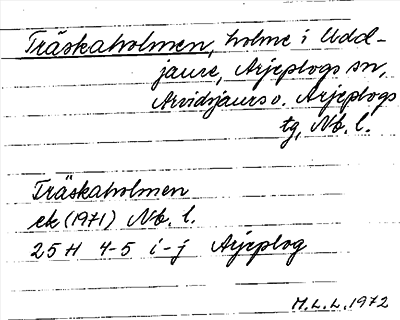 Träskaholmen, holme i Udd-
jaure, Arjeplogs sn,
Arvidsjaurs o. Arjeplogs
tg, Nb. l.
Träskaholmen
ek (1971) Nb. l.
25H 4-5 i-j Arjeplog
M.L.L. 1972